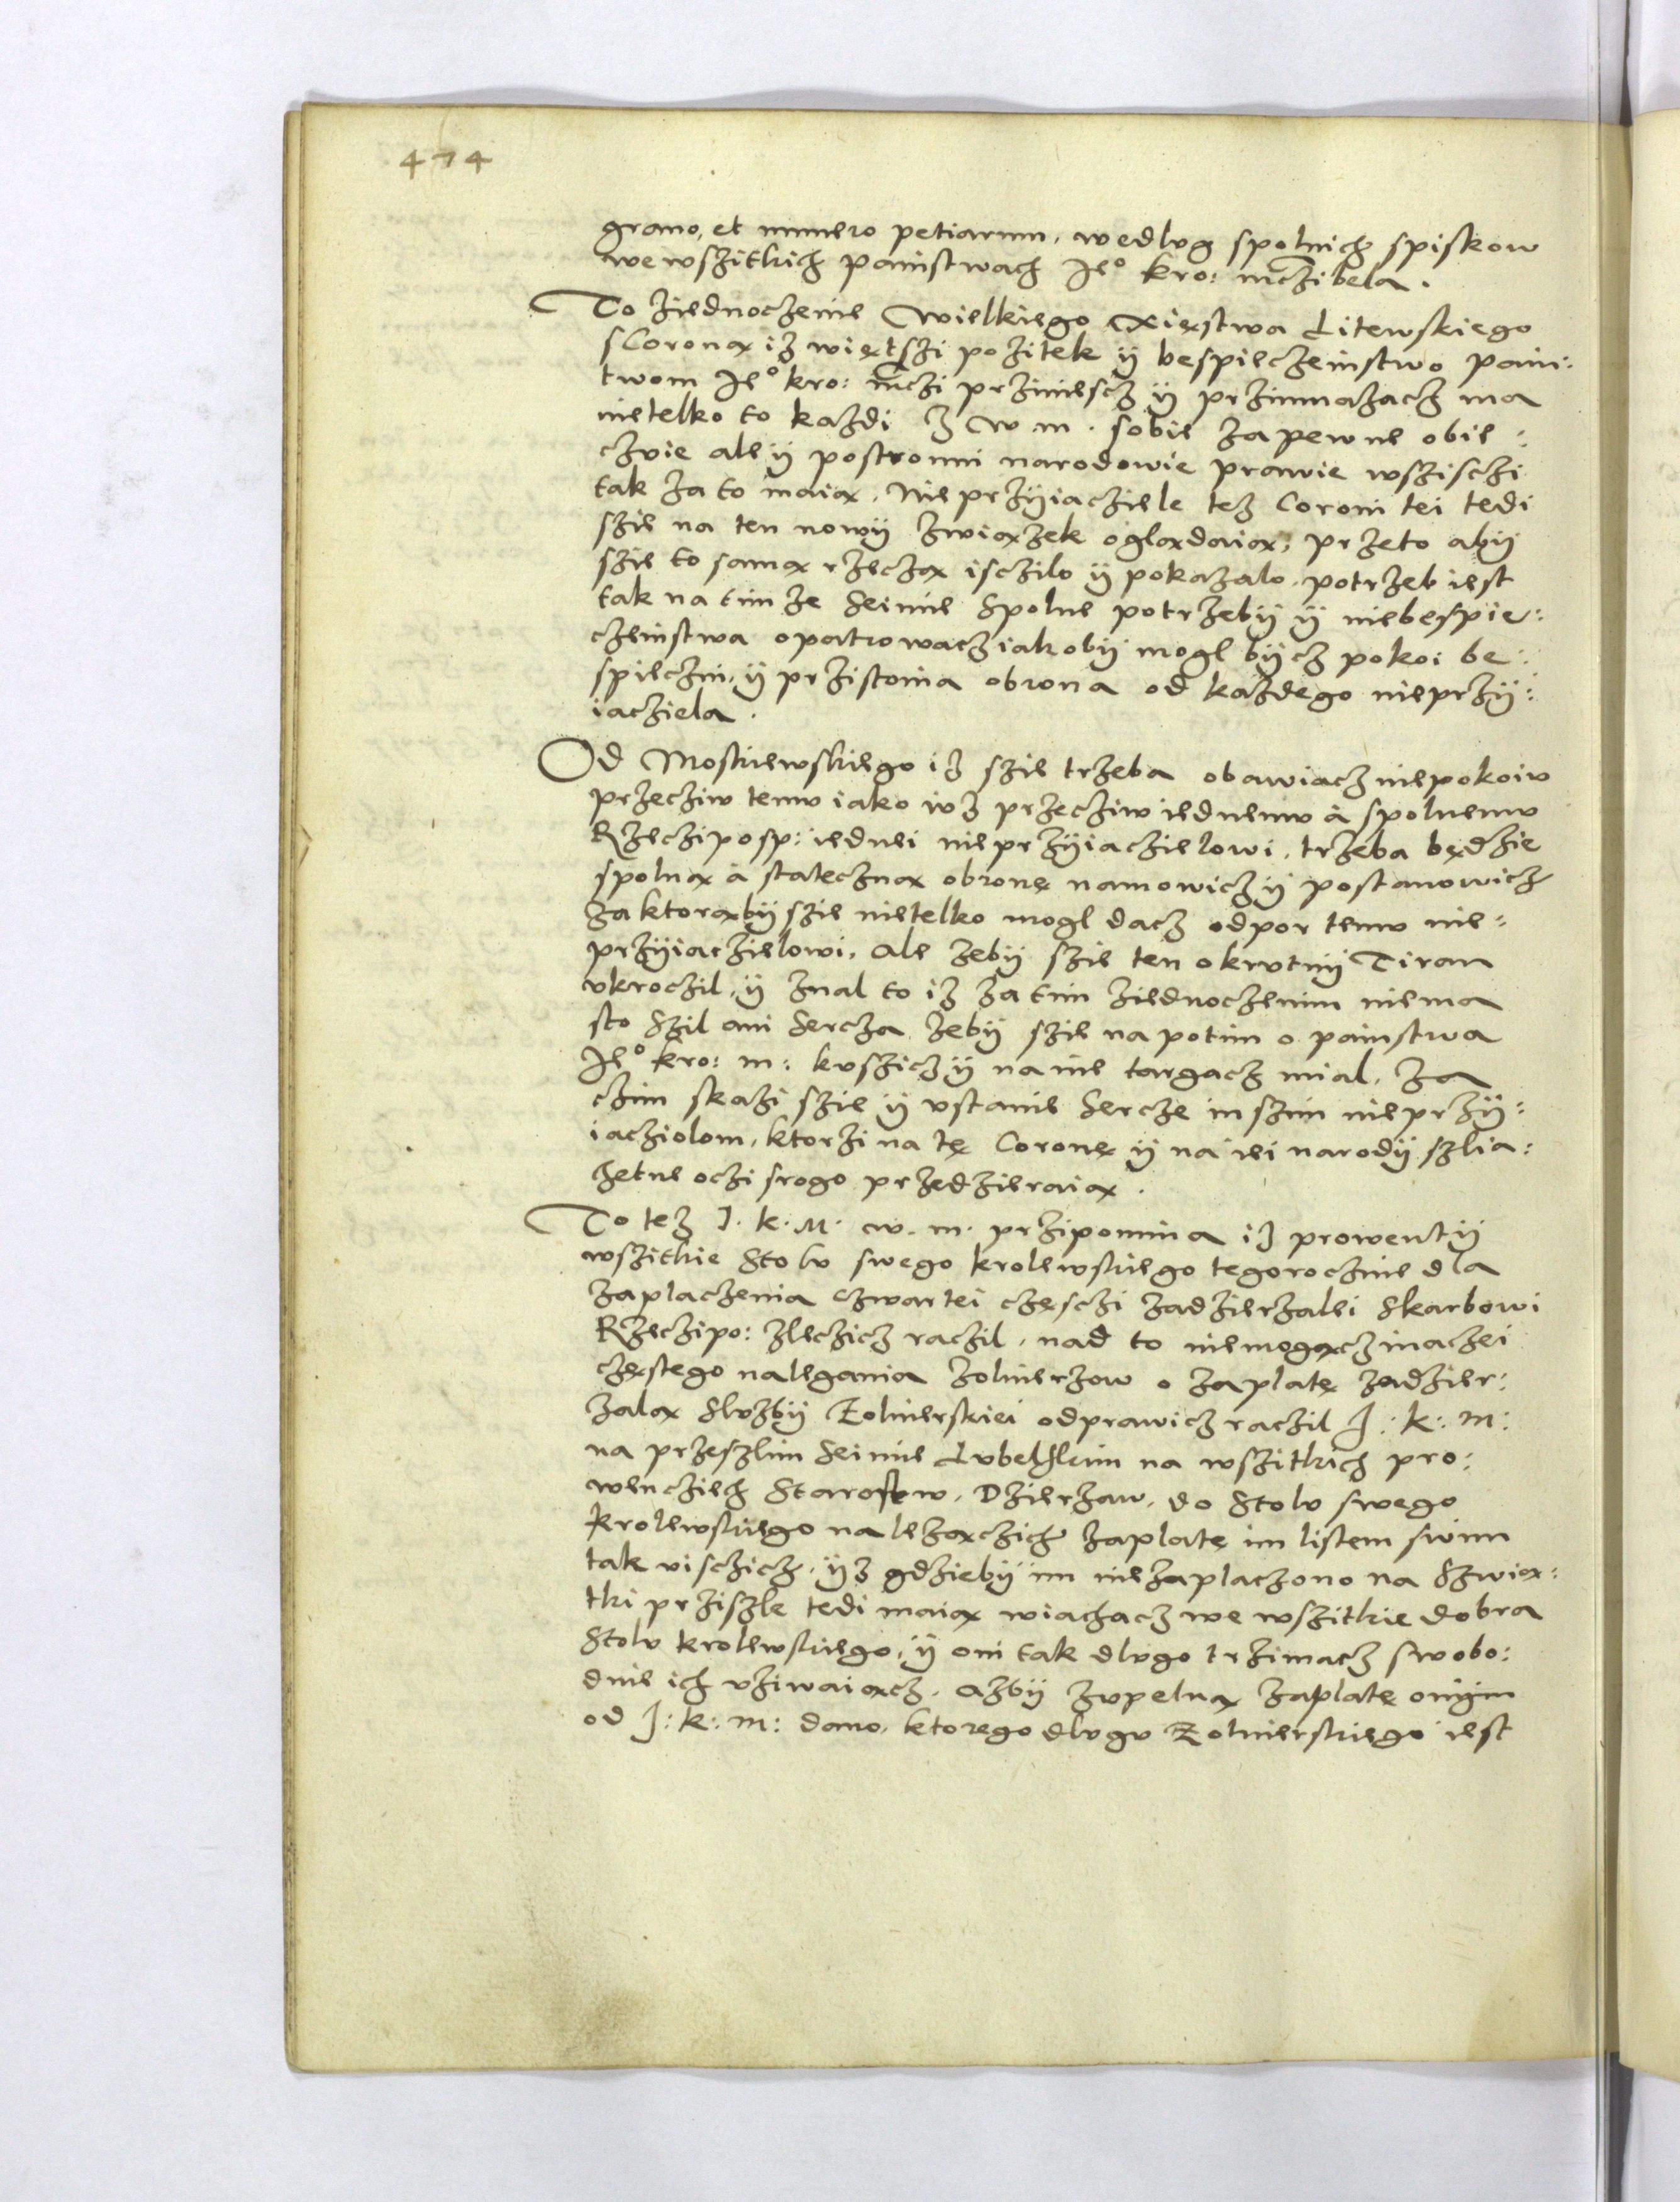 474
grano, et numero petiarum, wedlvg spolnich spiskow
we wszitkich painstwach Jeº kro: mczi bela.
To ziednoczenie Wielkiego Xięstwa Litewskiego
s Coronąx iz więtszi pozitek ÿ bespieczeinstwo pain:
twom Jeº kro: mczi prziniescz ÿ przimnazacz ma
nietelko to kazdi z W m. sobie zapewne obie:
czvie ale ÿ postronni narodowie prawie wszisczi
tak za to maiąx. Nieprzÿiacziele tez Coroni tei tedi
szie na ten nowÿ zwiąxzek oglądaiąx, przeto abÿ
szie to samąx rzecząx isczilo ÿ pokazalo. potrzeb iest
tak na tim ze Seimie Spolne potrzebÿ ÿ niebespie:
czeinstwa opatrowacz iakobÿ mogl bÿcz pokoi be:
spieczni, ÿ przistoina obrona od kazdego nieprzÿ:
iacziela.
Od Moskiewskiego iz szie trzeba obawiacz niepokoiv
przecziw temv iako ivz przecziw iednemv à spolnemv
Rzecziposp: iednei nieprzÿiaczielowi, trzeba będzie
spolnąx à statecznąx obronę namowicz ÿ postanowicz
za ktorąxbÿ szie nietelko mogl dacz odpor temv nie=
przÿiaczielowi, ale zebÿ szie ten okrvtnÿ Tiran
vkroczil, ÿ znal to iz za tim ziednoczenim niema
sto Szil ani Sercza zebÿ szie na potim o painstwa
Jeº kro: m: kvszicz ÿ na nie targacz mial, za
czim skazi szie ÿ vstanie Sercze inszim nieprzÿ:
iacziolom, ktorzi na tę Coronę ÿ na iei narodÿ szlia:
zetne oczi srogo przedzieraiąx.
To tez J. k. M. w. m. przipomina iz prowentÿ
wszitkie Stolv swego krolewskiego tegorocznie dla
zaplaczenia czwartei częsczi zadzierzalei Skarbowi
Rzeczipo: zleczicz raczil, nad to niemogąxcz inaczei
częstego nalegania zolnierzow o zaplatę zadzier:
zaląx Slvzbÿ Zolnierskiei odprawicz raczil J: k: m:
na przeszlim Seimie Lvbelskim na wszitkich pro:
wencziech Starostw, Dzierzaw, do Stolv swego
krolewskiego nalezączich zaplatę im listem swim
tak visczicz, ÿz gdziebÿ im niezaplaczono na Szwiąx:
tki prziszle tedi maiąx wiachacz we wszitkie dobra
Stolv krolewskiego, ÿ oni tak dlvgo trzimacz swobo:
dnie ich vziwaiąxcz, azbÿ zvpelnąx zaplatę onÿm
od J: k: m: dano, ktorego dlvgv Zolnierskiego iest